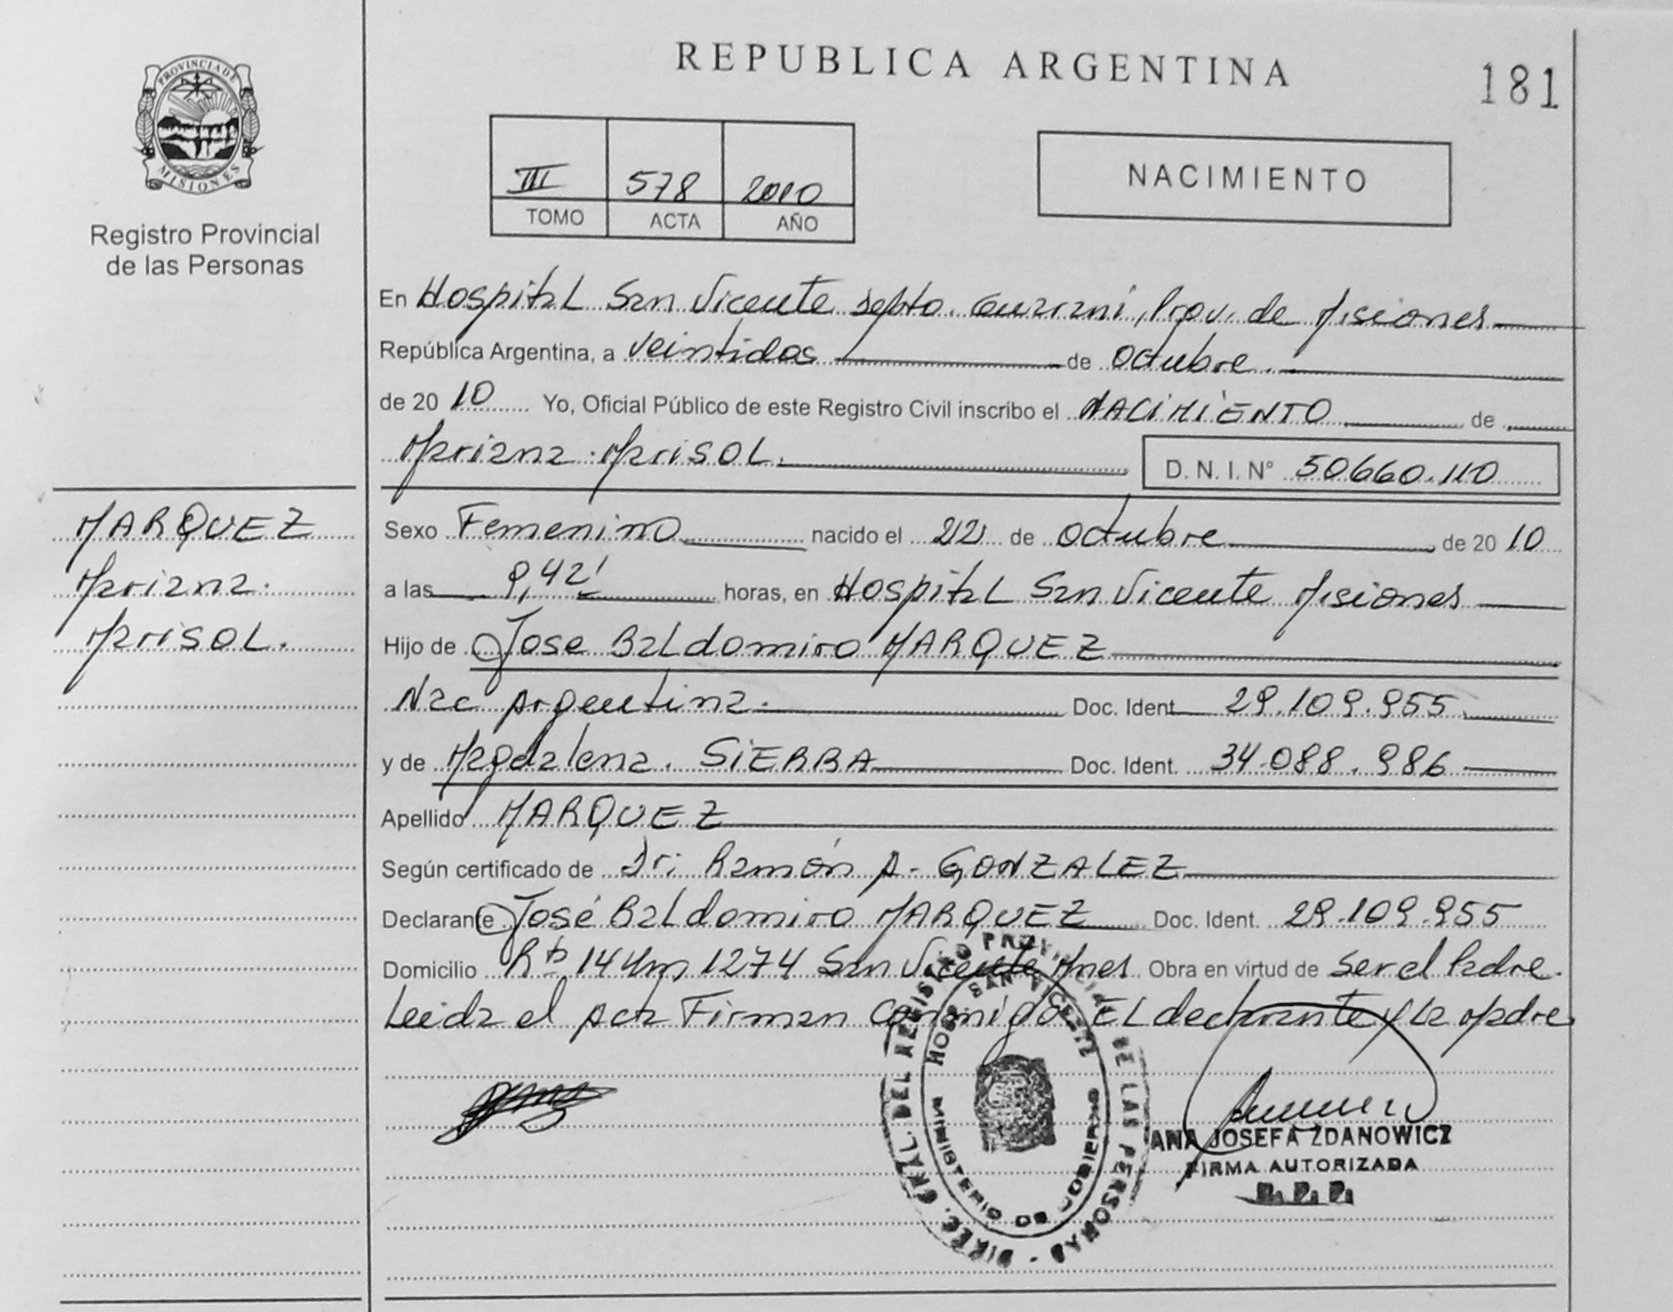 REPUBLICA ARGENTINA
181
PROVINCIA DE
MISIONES
Registro Provincial
de las Personas
III 578 2010
TOMO ACTA AÑO
NACIMIENTO
En Hospital San Vicente Depto. Guarani, Prov. de Misiones
República Argentina, a veintidos de octubre
de 20 10 Yo, Oficial Público de este Registro Civil inscribo el NACIMIENTO de
Mariana Marisol. D. N. I. N° 50660.110
MARQUEZ
Mariana
Marisol.
Sexo Femenino nacido el 22 de octubre de 20 10
a las 9,42' horas, en Hospital San Vicente Misiones
Hijo de Jose Baldomiro MARQUEZ
Nac Argentina. Doc. Ident. 29.109.955
y de Magdalena. SIERRA Doc. Ident. 34.088.986
Apellido MARQUEZ
Según certificado de Dr: Ramón A. GONZALEZ
Declarante José Baldomiro MARQUEZ Doc. Ident. 29.109.955
Domicilio 14 Km 1274 San Vicente Mnes Obra en virtud de ser el Padre.
Leida el Acta Firman conmigo EL declarante y la Madre
DIREC. GRAL. DEL REGISTRO PROVINCIAL DE LAS PERSONAS
HOSP. SAN VICENTE
MINISTERIO DE GOBIERNO
ANA JOSEFA ZDANOWICZ
FIRMA AUTORIZADA
R. P. P.